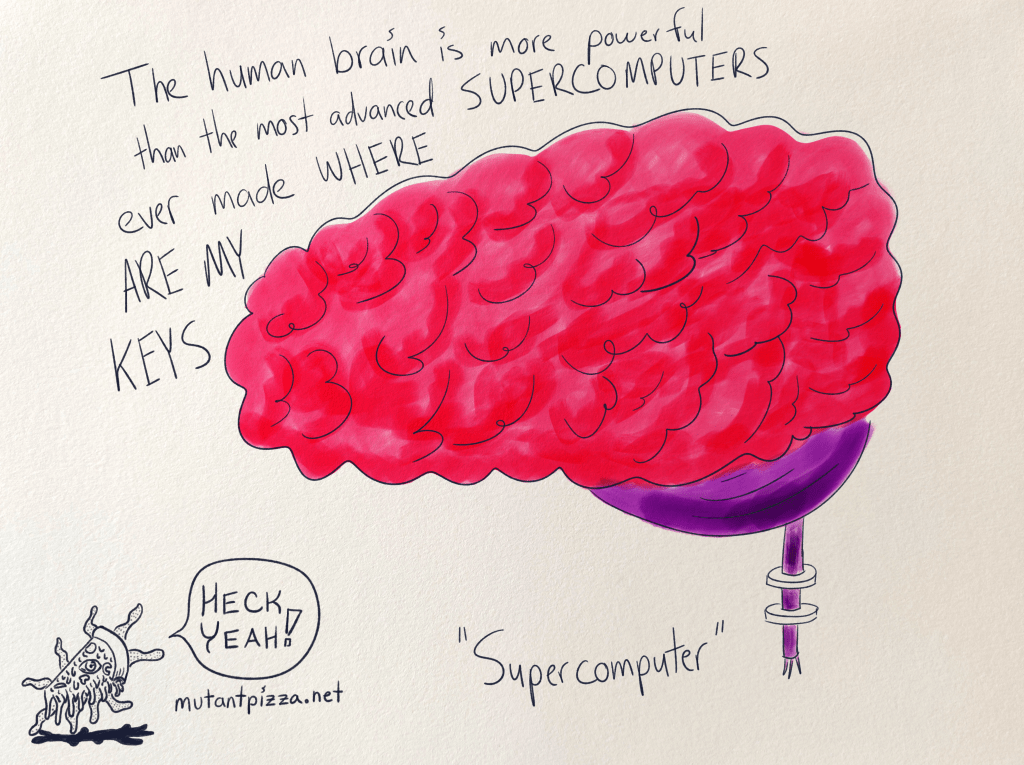 The human brain is more powerful
than the most advanced SUPERCOMPUTERS
ever made WHERE
ARE MY
KEYS
HECK
YEAH!
mutantpizza.net
"Supercomputer"